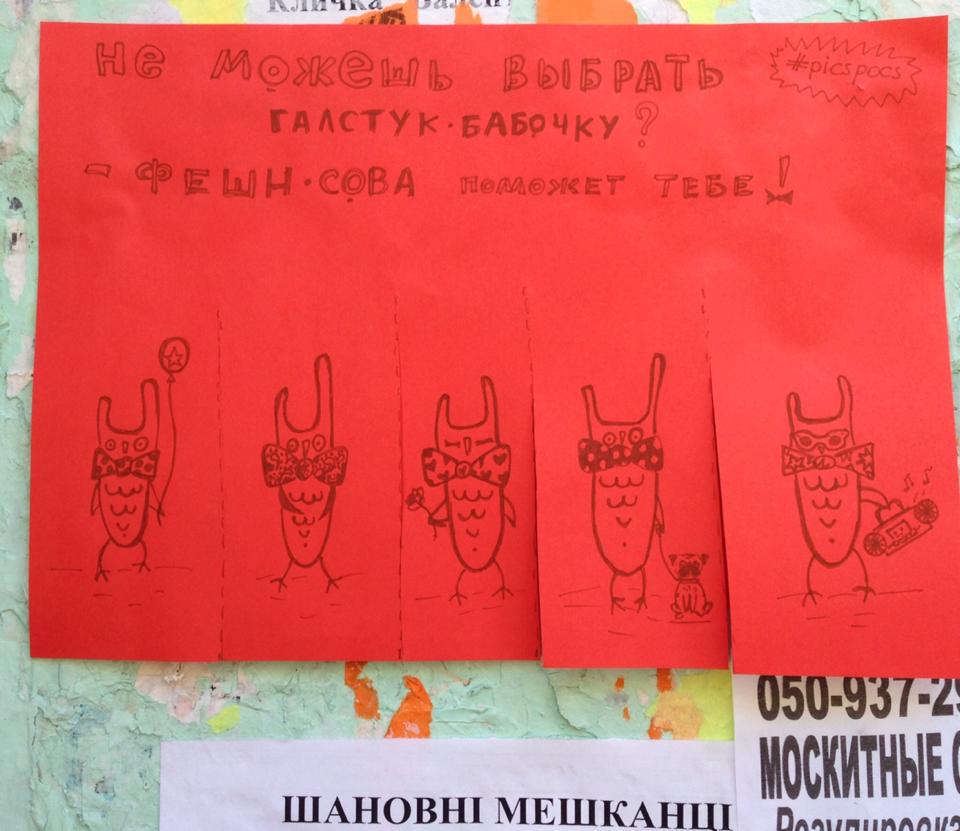 Кличка
Не можешь выбрать
#picspocs
галстук-бабочку?
- фешн-сова поможет тебе!
050-937-29
МОСКИТНЫЕ
ШАНОВНІ МЕШКАНЦІ